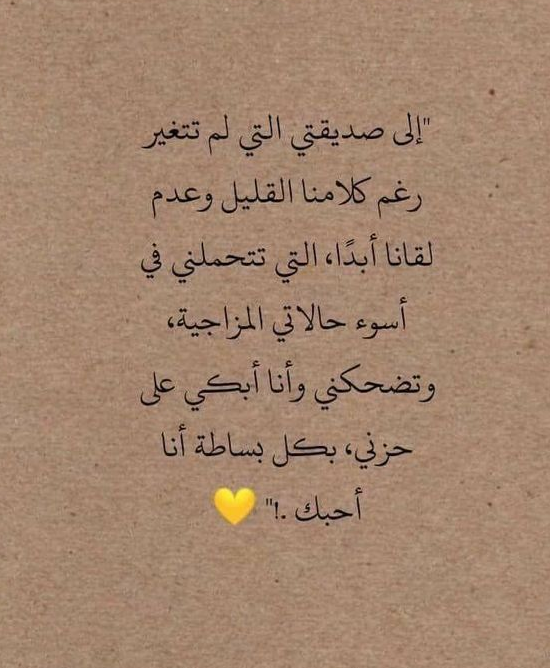 "إلى صديقتي التي لم تتغير
رغم كلامنا القليل وعدم
لقانا أبدًا، التي تتحملني في
أسوء حالاتي المزاجية،
وتضحكني وأنا أبكي على
حزني، بكل بساطة أنا
أحبك .!" 💛